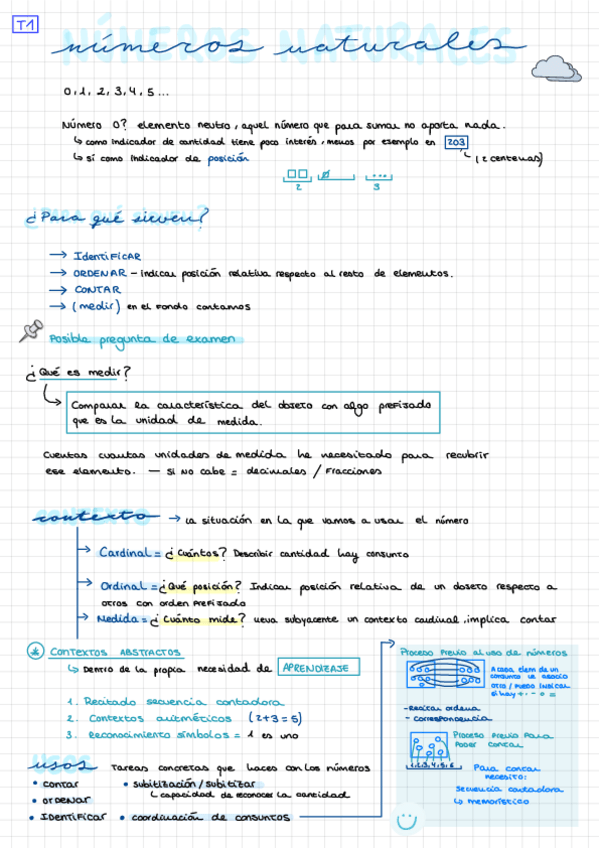 T1
NÚMEROS NATURALES
números naturales
0, 1, 2, 3, 4, 5 ...
Número 0? elemento neutro, aquel número que para sumar no aporta nada.
↳ como indicador de cantidad tiene poco interés, menos por ejemplo en 203
↳ sí como indicador de posición
(2 centenas)
2 3
¿Para qué sirven?
→ IDENTIFICAR
→ ORDENAR - indicar posición relativa respecto al resto de elementos.
→ CONTAR
→ (medir) en el fondo contamos
Posible pregunta de examen
¿Qué es medir?
Comparar la característica del objeto con algo prefijado
que es la unidad de medida.
Cuentas cuantas unidades de medida he necesitado para recubrir
ese elemento. — si no cabe = decimales / fracciones
contexto → la situación en la que vamos a usar el número
→ Cardinal = ¿Cuántos? Describir cantidad hay conjunto
→ Ordinal = ¿Qué posición? Indicar posición relativa de un objeto respecto a
otros con orden prefijado
→ Medida = ¿Cuánto mide? lleva subyacente un contexto cardinal, implica contar
* CONTEXTOS ABSTRACTOS
↳ Dentro de la propia necesidad de APRENDIZAJE
1. Recitado secuencia contadora
2. Contextos aritméticos (2+3=5)
3. Reconocimiento símbolos = 1 es uno
USOS
usos Tareas concretas que haces con los números
• contar
• ordenar
• IDENTIFICAR
• subitización / subitizar
↳ capacidad de reconocer la cantidad
• coordinación de conjuntos
Proceso previo al uso de números
A cada elem de un
conjunto le asocio
otro / puedo indicar
si hay + · - o =
- Recitar ordena
- correspondencia
Proceso previo para
poder contar
1, 2, 3, 4, 5, 6
Para contar
necesito:
secuencia contadora
↳ memorístico